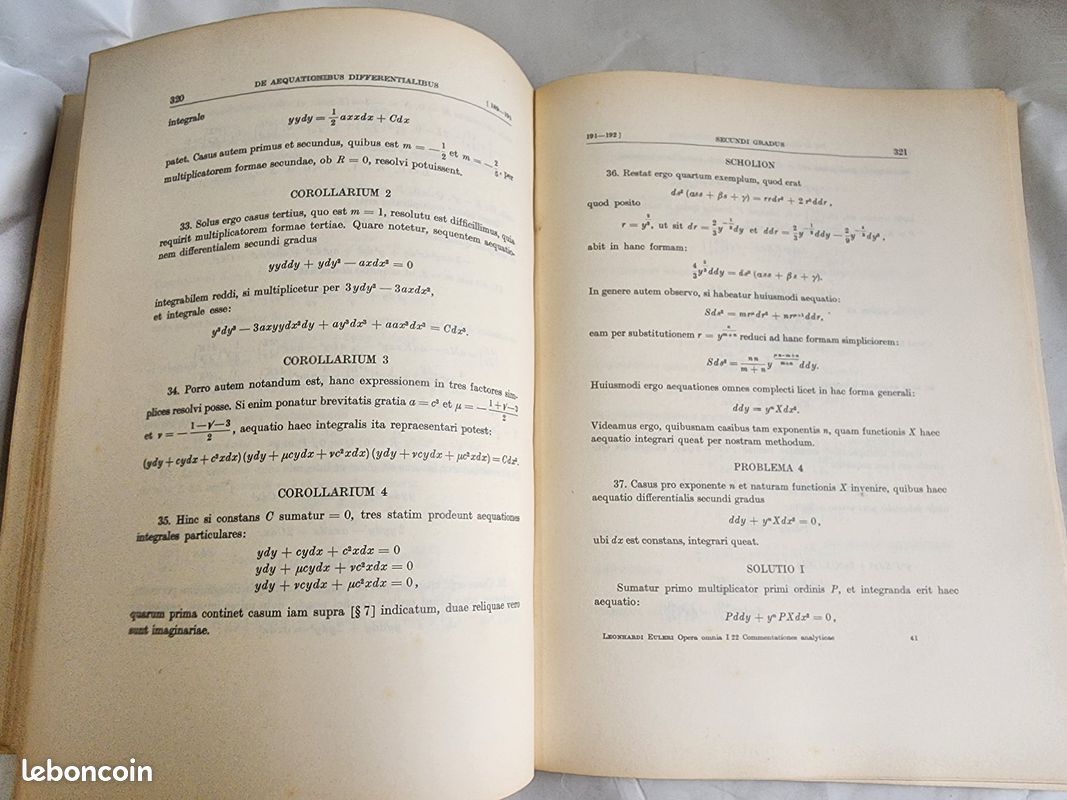 320
DE AEQUATIONIBUS DIFFERENTIALIBUS
[189—191
integrale
yydy = 1/2 axxdx + Cdx
patet. Casus autem primus et secundus, quibus est m = −1/2 et m = −2/5, per
multiplicatorem formae secundae, ob R = 0, resolvi potuissent.
COROLLARIUM 2
33. Solus ergo casus tertius, quo est m = 1, resolutu est difficillimus, quia
requirit multiplicatorem formae tertiae. Quare notetur, sequentem aequatio-
nem differentialem secundi gradus
yyddy + ydy² − axdx² = 0
integrabilem reddi, si multiplicetur per 3ydy² − 3axdx²,
et integrale esse:
y³dy³ − 3axyydx²dy + ay³dx³ + aax³dx³ = Cdx³.
COROLLARIUM 3
34. Porro autem notandum est, hanc expressionem in tres factores sim-
plices resolvi posse. Si enim ponatur brevitatis gratia a = c³ et μ = −(1+√−3)/2
et ν = −(1−√−3)/2, aequatio haec integralis ita repraesentari potest:
(ydy + cydx + c²xdx)(ydy + μcydx + νc²xdx)(ydy + νcydx + μc²xdx) = Cdx³.
COROLLARIUM 4
35. Hinc si constans C sumatur = 0, tres statim prodeunt aequationes
integrales particulares:
ydy + cydx + c²xdx = 0
ydy + μcydx + νc²xdx = 0
ydy + νcydx + μc²xdx = 0,
quarum prima continet casum iam supra [§ 7] indicatum, duae reliquae vero
sunt imaginariae.
191—192]
SECUNDI GRADUS
321
SCHOLION
36. Restat ergo quartum exemplum, quod erat
ds² (αss + βs + γ) = rrdr² + 2r³ddr,
quod posito
r = y^(2/3), ut sit dr = 2/3 y^(−1/3) dy et ddr = 2/3 y^(−1/3) ddy − 2/9 y^(−4/3) dy²,
abit in hanc formam:
4/3 y^(5/3) ddy = ds² (αss + βs + γ).
In genere autem observo, si habeatur huiusmodi aequatio:
Sds² = mrⁿdr² + nrⁿ⁺¹ddr,
eam per substitutionem r = y^(n/(m+n)) reduci ad hanc formam simpliciorem:
Sds² = nn/(m + n) ddy.
Huiusmodi ergo aequationes omnes complecti licet in hac forma generali:
ddy = yⁿXdx².
Videamus ergo, quibusnam casibus tam exponentis n, quam functionis X haec
aequatio integrari queat per nostram methodum.
PROBLEMA 4
37. Casus pro exponente n et naturam functionis X invenire, quibus haec
aequatio differentialis secundi gradus
ddy + yⁿXdx² = 0,
ubi dx est constans, integrari queat.
SOLUTIO I
Sumatur primo multiplicator primi ordinis P, et integranda erit haec
aequatio:
Pddy + yⁿPXdx² = 0,
LEONHARDI EULERI Opera omnia I 22 Commentationes analyticae
41
leboncoin